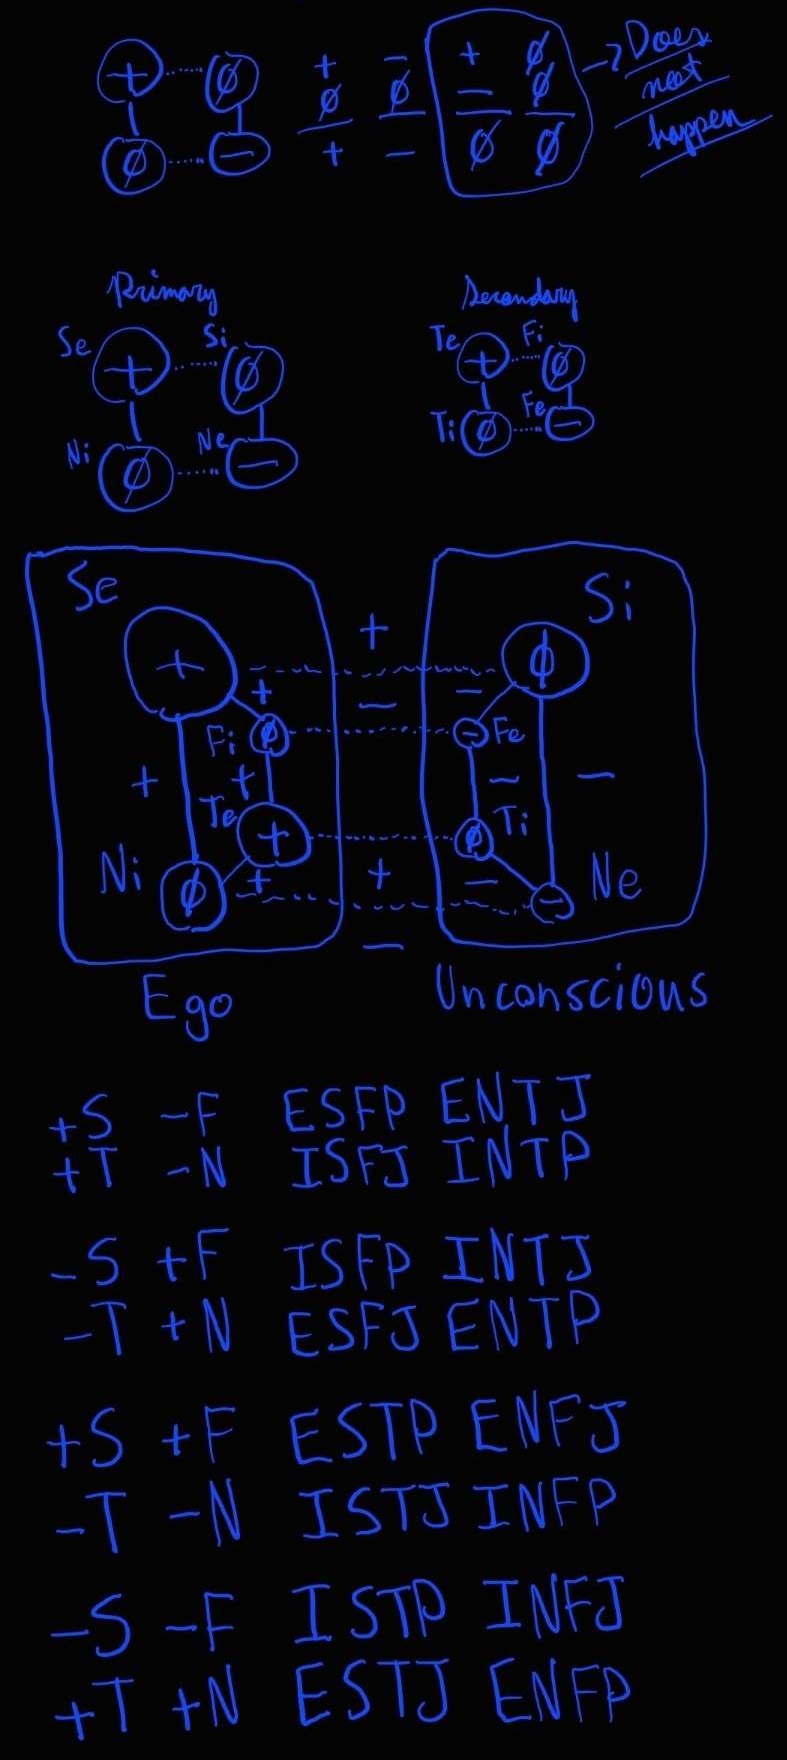 + ∅ + - + ∅ → Does
∅ ∅ - ∅ not
∅ - + - ∅ ∅ happen
Primary Secondary
Se + Si ∅ Te + Fi ∅
Ni ∅ Ne - Ti ∅ Fe -
Se Si
+ + ∅
+ - -
Fi ∅ - Fe
+ + - -
Te + ∅ Ti
Ni ∅ + + - - Ne
-
Ego Unconscious
+S -F ESFP ENTJ
+T -N ISFJ INTP
-S +F ISFP INTJ
-T +N ESFJ ENTP
+S +F ESTP ENFJ
-T -N ISTJ INFP
-S -F ISTP INFJ
+T +N ESTJ ENFP